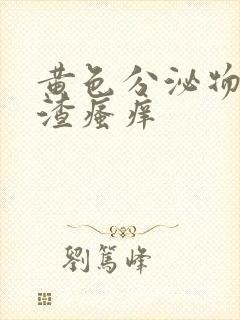 黄色分泌物
渣瘙痒
劉篤峰